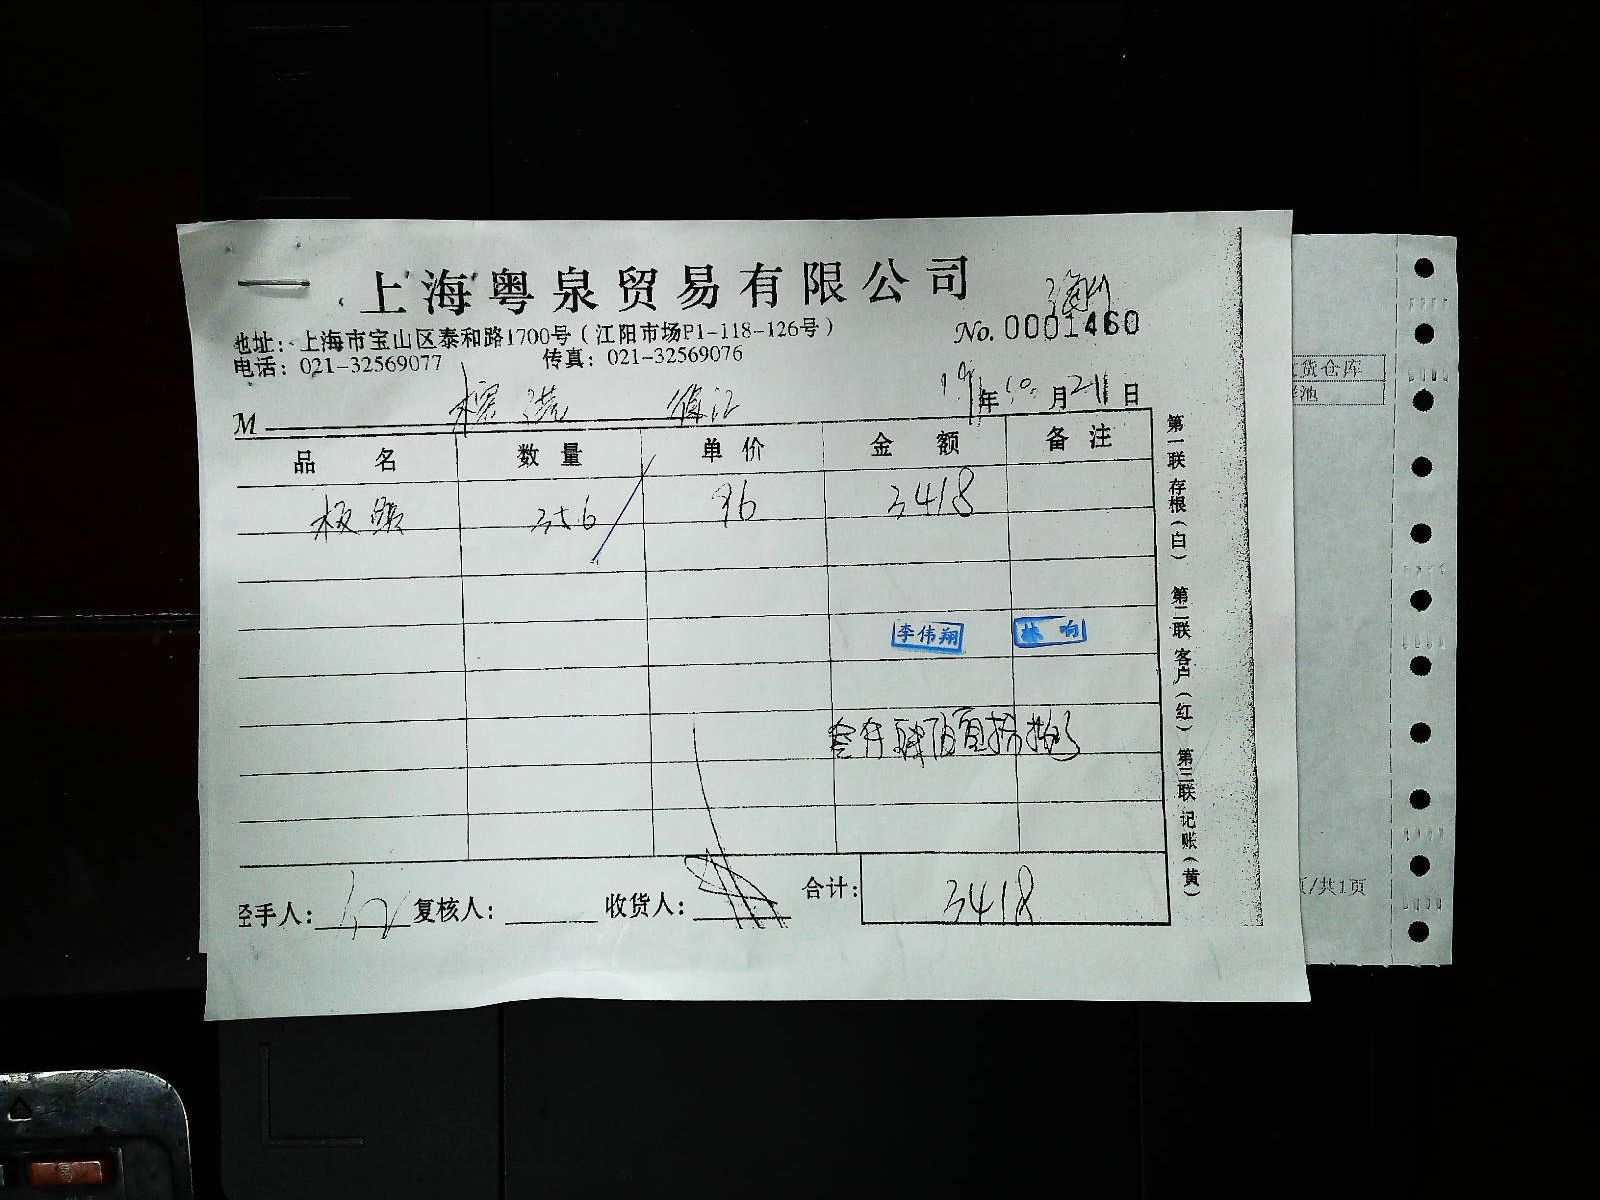 上海粤泉贸易有限公司
地址：上海市宝山区泰和路1700号（江阳市场P1-118-126号）
No. 0001460
电话：021-32569077 传真：021-32569076
19年10月21日
M
品名 数量 单价 金额 备注
356 96 3418
李伟翔 林响
经手人： 复核人： 收货人： 合计： 3418
第一联存根（白） 第二联客户（红） 第三联记账（黄）
货仓库
池
页/共1页